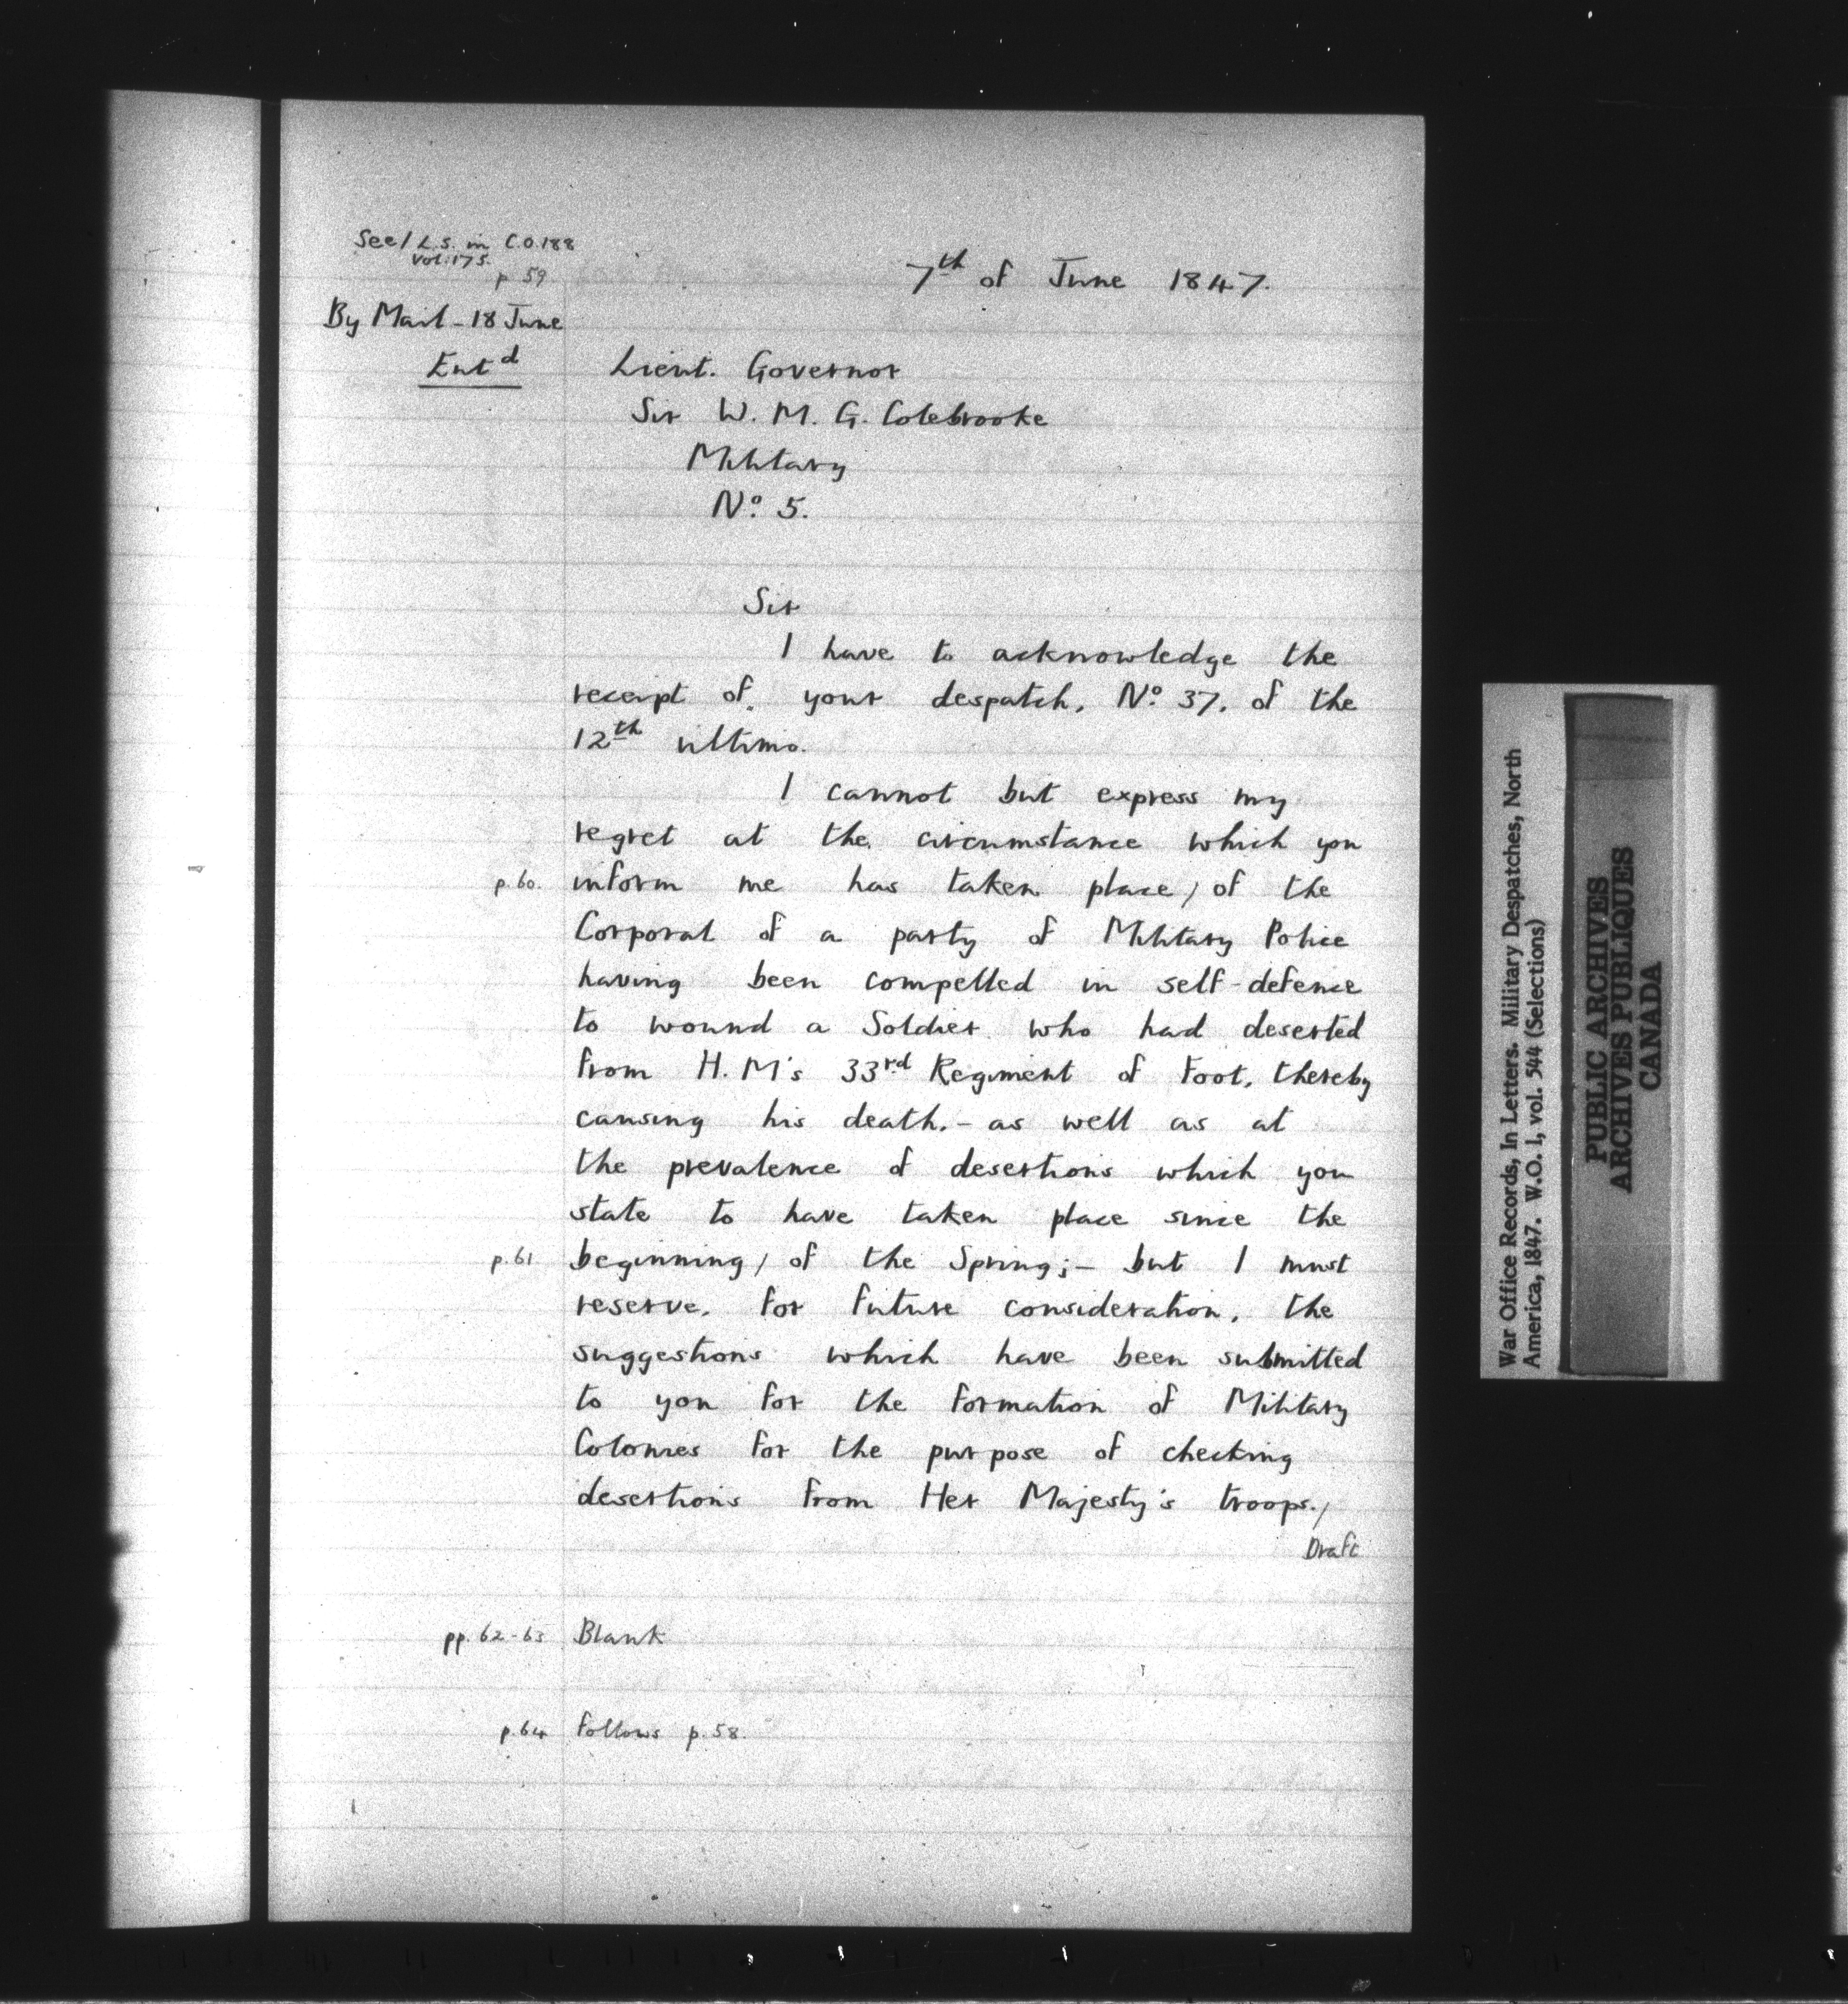 See/ L.S. in C.O.188
Vol: 175.
p 59.
7th of June 1847.
By Mail - 18 June
Entd
Lieut. Governor
Sir W. M. G. Colebrooke
Military
No. 5.
Sir
I have to acknowledge the
receipt of your despatch, No. 37, of the
12th ultimo.
I cannot but express my
regret at the circumstance which you
p.60. inform me has taken place / of the
Corporal of a party of Military Police
having been compelled in self-defence
to wound a Soldier who had deserted
from H.M's 33rd Regiment of Foot, thereby
causing his death, - as well as at
the prevalence of desertions which you
state to have taken place since the
p.61. beginning / of the Spring; - but I must
reserve, for future consideration, the
suggestions which have been submitted
to you for the formation of Military
Colonies for the purpose of checking
desertions from Her Majesty's troops. /
Draft
pp. 62-63 Blank
p.64 follows p.58.
War Office Records, In Letters. Military Despatches, North
America, 1847. W.O. 1, vol. 544 (Selections)
PUBLIC ARCHIVES
ARCHIVES PUBLIQUES
CANADA